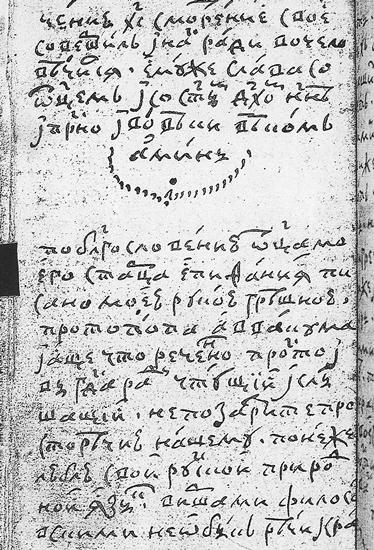 чение х҃с смерение свое
содетѣль ј на ради во чело
вѣчися · емꙋже слава со
ѡ҃цемъ ј со ст҃ымъ дх҃омъ нн҃ѣ
ј пр҃но ј во вѣки вѣкомъ
аминь
по блг҃ословению ѡ҃ца мо
его ста҃ца епифания пи
сано моею рꙋкою грѣшною ·
протопопа аввакума
ј аще что речено просто ј
вы г҃да ради чтꙋщиї ј слы
шащиї · не позазрите про
сторѣчию нашемꙋ · понеже
люблю свой рꙋской приро
ной языкъ · виршами филосо
вскими не ѡбыкъ рѣчи кра